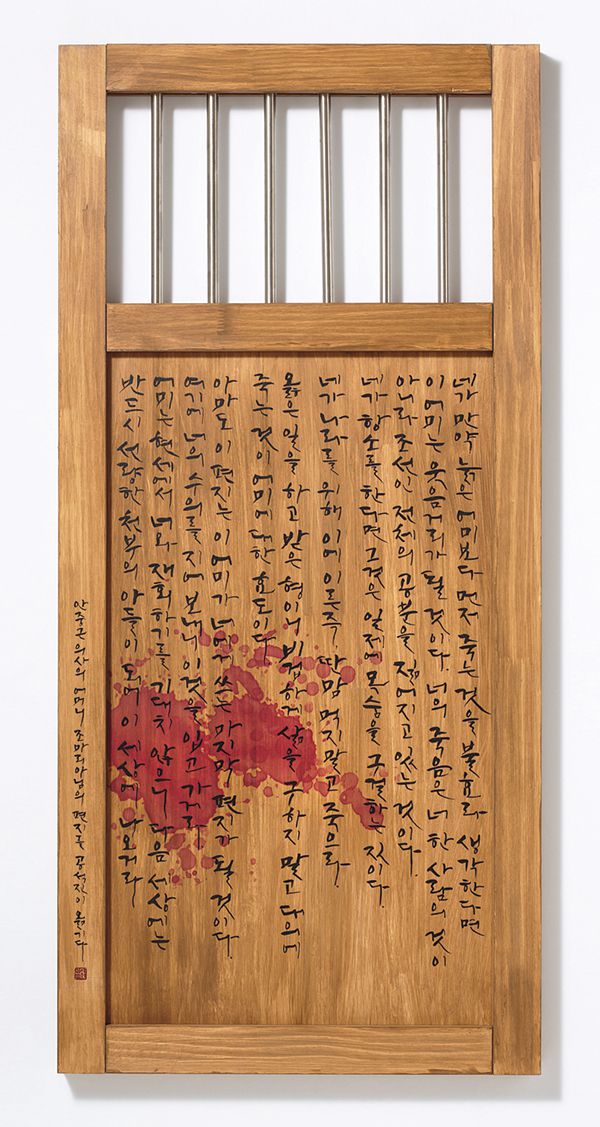 네가 만약 늙은 어미보다 먼저 죽는 것을 불효라 생각한다면
이 어미는 웃음거리가 될 것이다. 너의 죽음은 너 한 사람의 것이
아니라 조선인 전체의 공분을 짊어지고 있는 것이다.
네가 항소를 한다면 그것은 일제에 목숨을 구걸하는 짓이다.
네가 나라를 위해 이에 이른즉 딴맘 먹지말고 죽으라.
옳은 일을 하고 받은 형이니 비겁하게 삶을 구하지 말고 대의에
죽는 것이 어미에 대한 효도이다.
아마도 이 편지는 이 어미가 너에게 쓰는 마지막 편지가 될 것이다.
여기에 너의 수의를 지어 보내니 이것을 입고 가거라.
어미는 현세에서 너와 재회하기를 기대치 않으니 다음 세상에는
반드시 선량한 천부의 아들이 되어 이 세상에 나오거라
안중근 의사의 어머니 조마리아님의 편지를 공석진이 옮기다